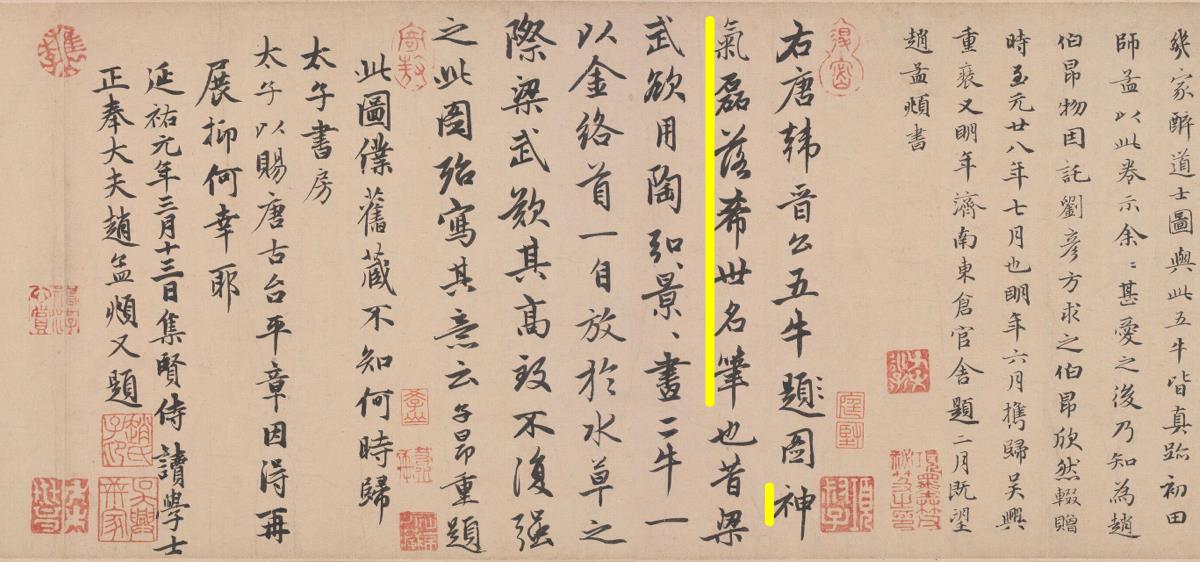 幾家醉道士圖與此五牛皆真跡初田
師孟以此卷示余〻甚愛之後乃知為趙
伯昂物因託劉彥方求之伯昂欣然輟贈
時至元廿八年七月也明年六月攜歸吳興
重裝又明年濟南東倉官舍題二月既望
趙孟頫書
右唐韓晉公五牛題圖神
氣磊落希世名筆也昔梁
武欲用陶弘景〻畫二牛一
以金絡首一自放於水草之
際梁武歎其高致不復强
之此圖殆寫其意云子昂重題
此圖僕舊藏不知何時歸
太子書房
太子以賜唐古台平章因得再
展抑何幸耶
延祐元年三月十三日集賢侍讀學士
正奉大夫趙孟頫又題
趙氏子昂